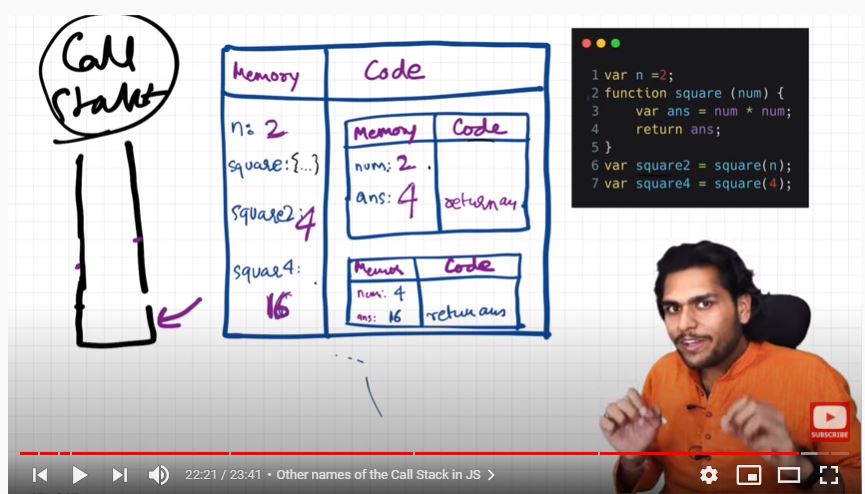 Call
Stak
Memory
Code
n: 2
square:{...}
square2:
4
squae4:
16
Memory
Code
num: 2
ans: 4
return an
Memor
Code
num: 4
ans: 16
return ans
1 var n =2;
2 function square (num) {
3 var ans = num * num;
4 return ans;
5 }
6 var square2 = square(n);
7 var square4 = square(4);
SUBSCRIBE
22:21 / 23:41 • Other names of the Call Stack in JS >